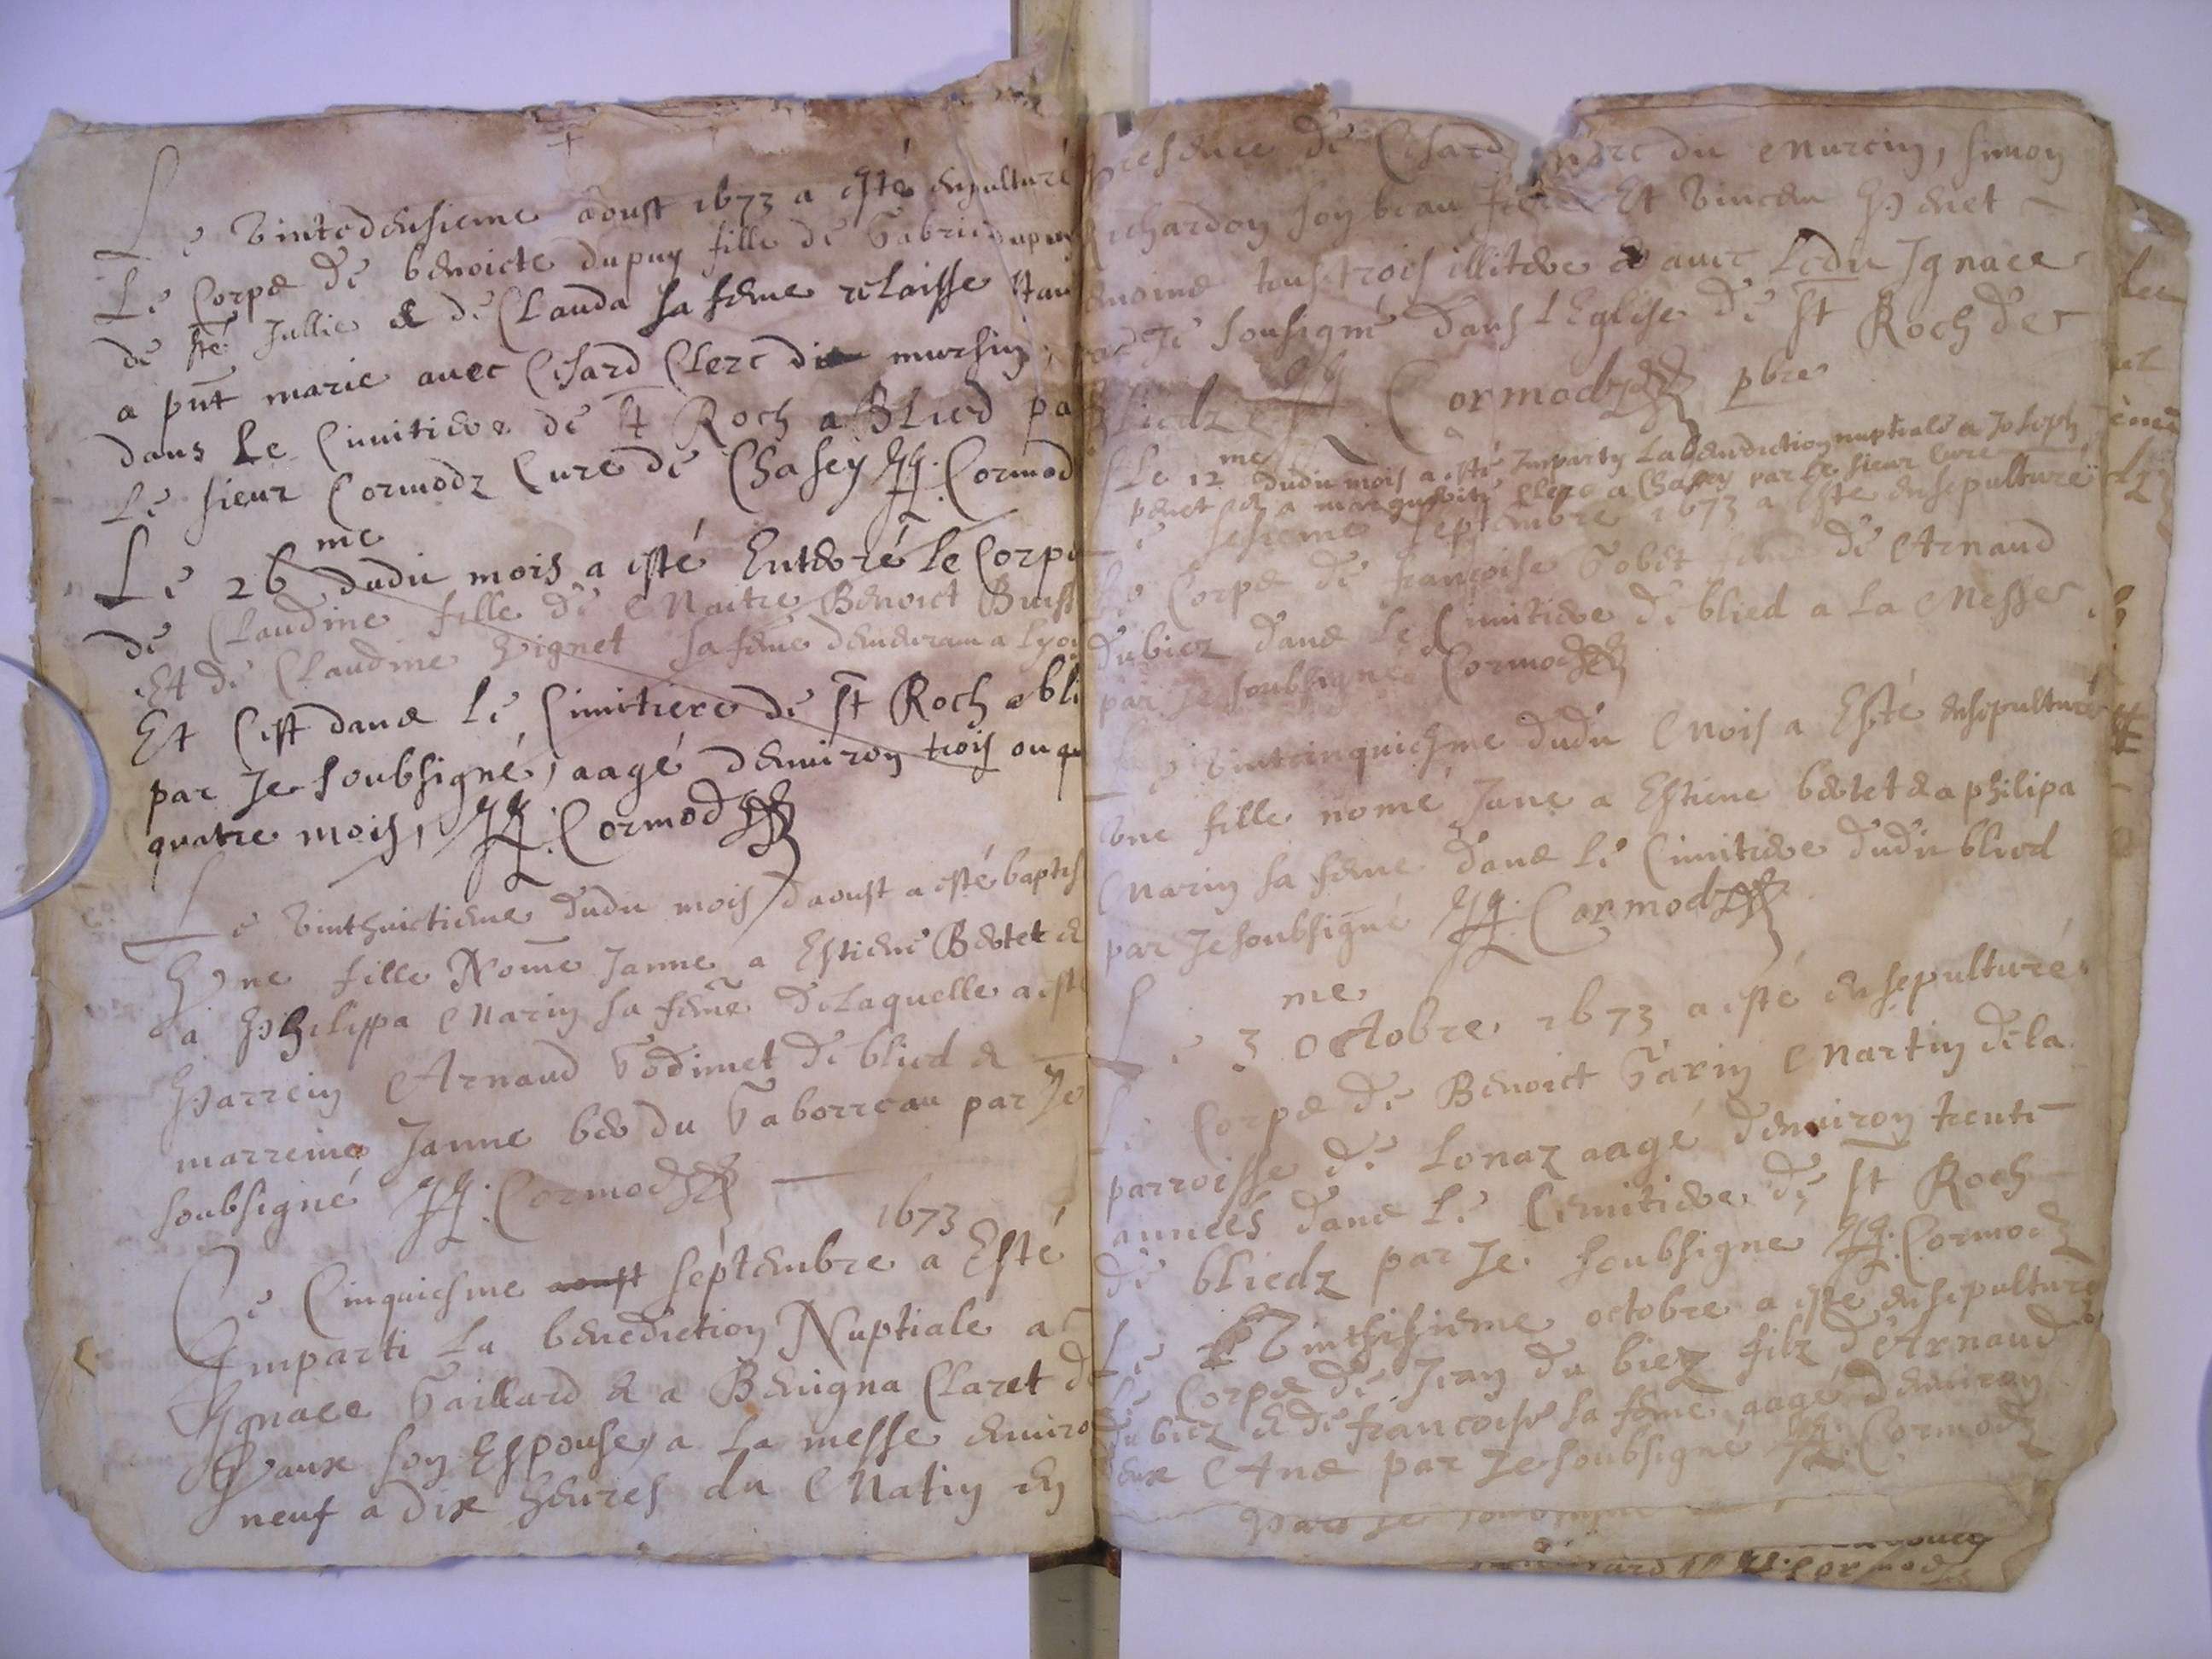 Le vintedeusieme aoust 1673 a esté enpulturé
Le Corps de benoicte dupuy fille de Gabriel dupuy
de ste Jullie & de Clauda sa feme relaisse
a pnt marie avec Cesard Clerc mursin,
dans Le Cimitiere de st Roch a Blied pa
Le sieur Cormodz Cure de Chasey Cormod
Le 26 me dudit mois a esté Enterré Le Corps
de Claudine fille de Maitre Benoict
Et de Claudine sa feme a Lyon
Et C'est dans Le Cimitiere de st Roch a bli
par Je soubsigné, aagé d'environ trois ou qu
quatre mois, Cormodz
Le vinthuictieme dudit mois d'aoust a esté baptis
Vne fille Nomé Janne a Estiene Bertet &
a Philippa Marin sa feme de Laquelle a esté
Parrein Arnaud Godimet de blied &
marreine Janne du Gaborreau par Je
soubsigné Cormodz
1673
Le Cinquiesme aoust septembre a Esté
Imparti La benediction Nuptiale a
Ignace Gaillard & a Benigna Claret de
Vaux son Espouse, a La messe enviro
neuf a dix heures du Matin en
presence de Cesard du Murcin, simon
Richardon son beau Et vincen Penet
tous trois illiteres & avec Ledit Ignace
Je sousigné dans L'Eglise de st Roch de
Bliedz Cormodz pbre
Le 12 me dudit mois a esté Imparty La benediction nuptiale a Joseph
penet & a marguerite Clerc a Chasey par Le sieur Cure
Le sesieme septembre 1673 a Esté ensepulturé
Le Corps de françoise Gobet feme de Arnaud
dubiez dans Le Cimitiere de blied a La Messe
par Je soubsigné Cormodz
Le vintcinquiesme dudit Mois a Esté ensepulturé
vne fille nomé Jane a Estiene bertet & a philipa
Marin sa feme dans Le Cimitiere dudit blied
par Je soubsigné Cormodz
Le 3 me Octobre 1673 a esté ensepulturé
Le Corps de Benoict Garin Martin de La
parroisse de Lonaz aagé d'environ trente
années dans Le Cimitiere de st Roch
de bliedz par Je soubsigné Cormodz
Le octobre a esté ensepulturé
Le Corps de Jean du biez filz d'Arnaud
du biez & de francoise sa feme aagé d'environ
Ans par Je soubsigné Cormodz